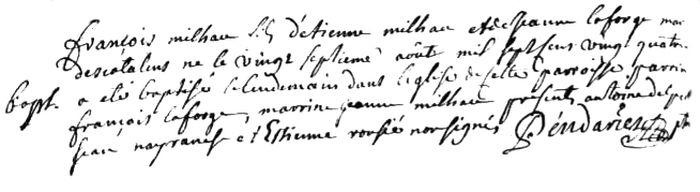 françois milhau fils d'étienne milhau et de jeanne laforge
ne le vingt septieme août mil sept sens vingt quatre
Bapt. a eté baptisé le lendemain dans l'église de cette parroisse parrin
françois laforge, marrine jeanne milhau présents antoine
jean et Estienne non signés Pendariés